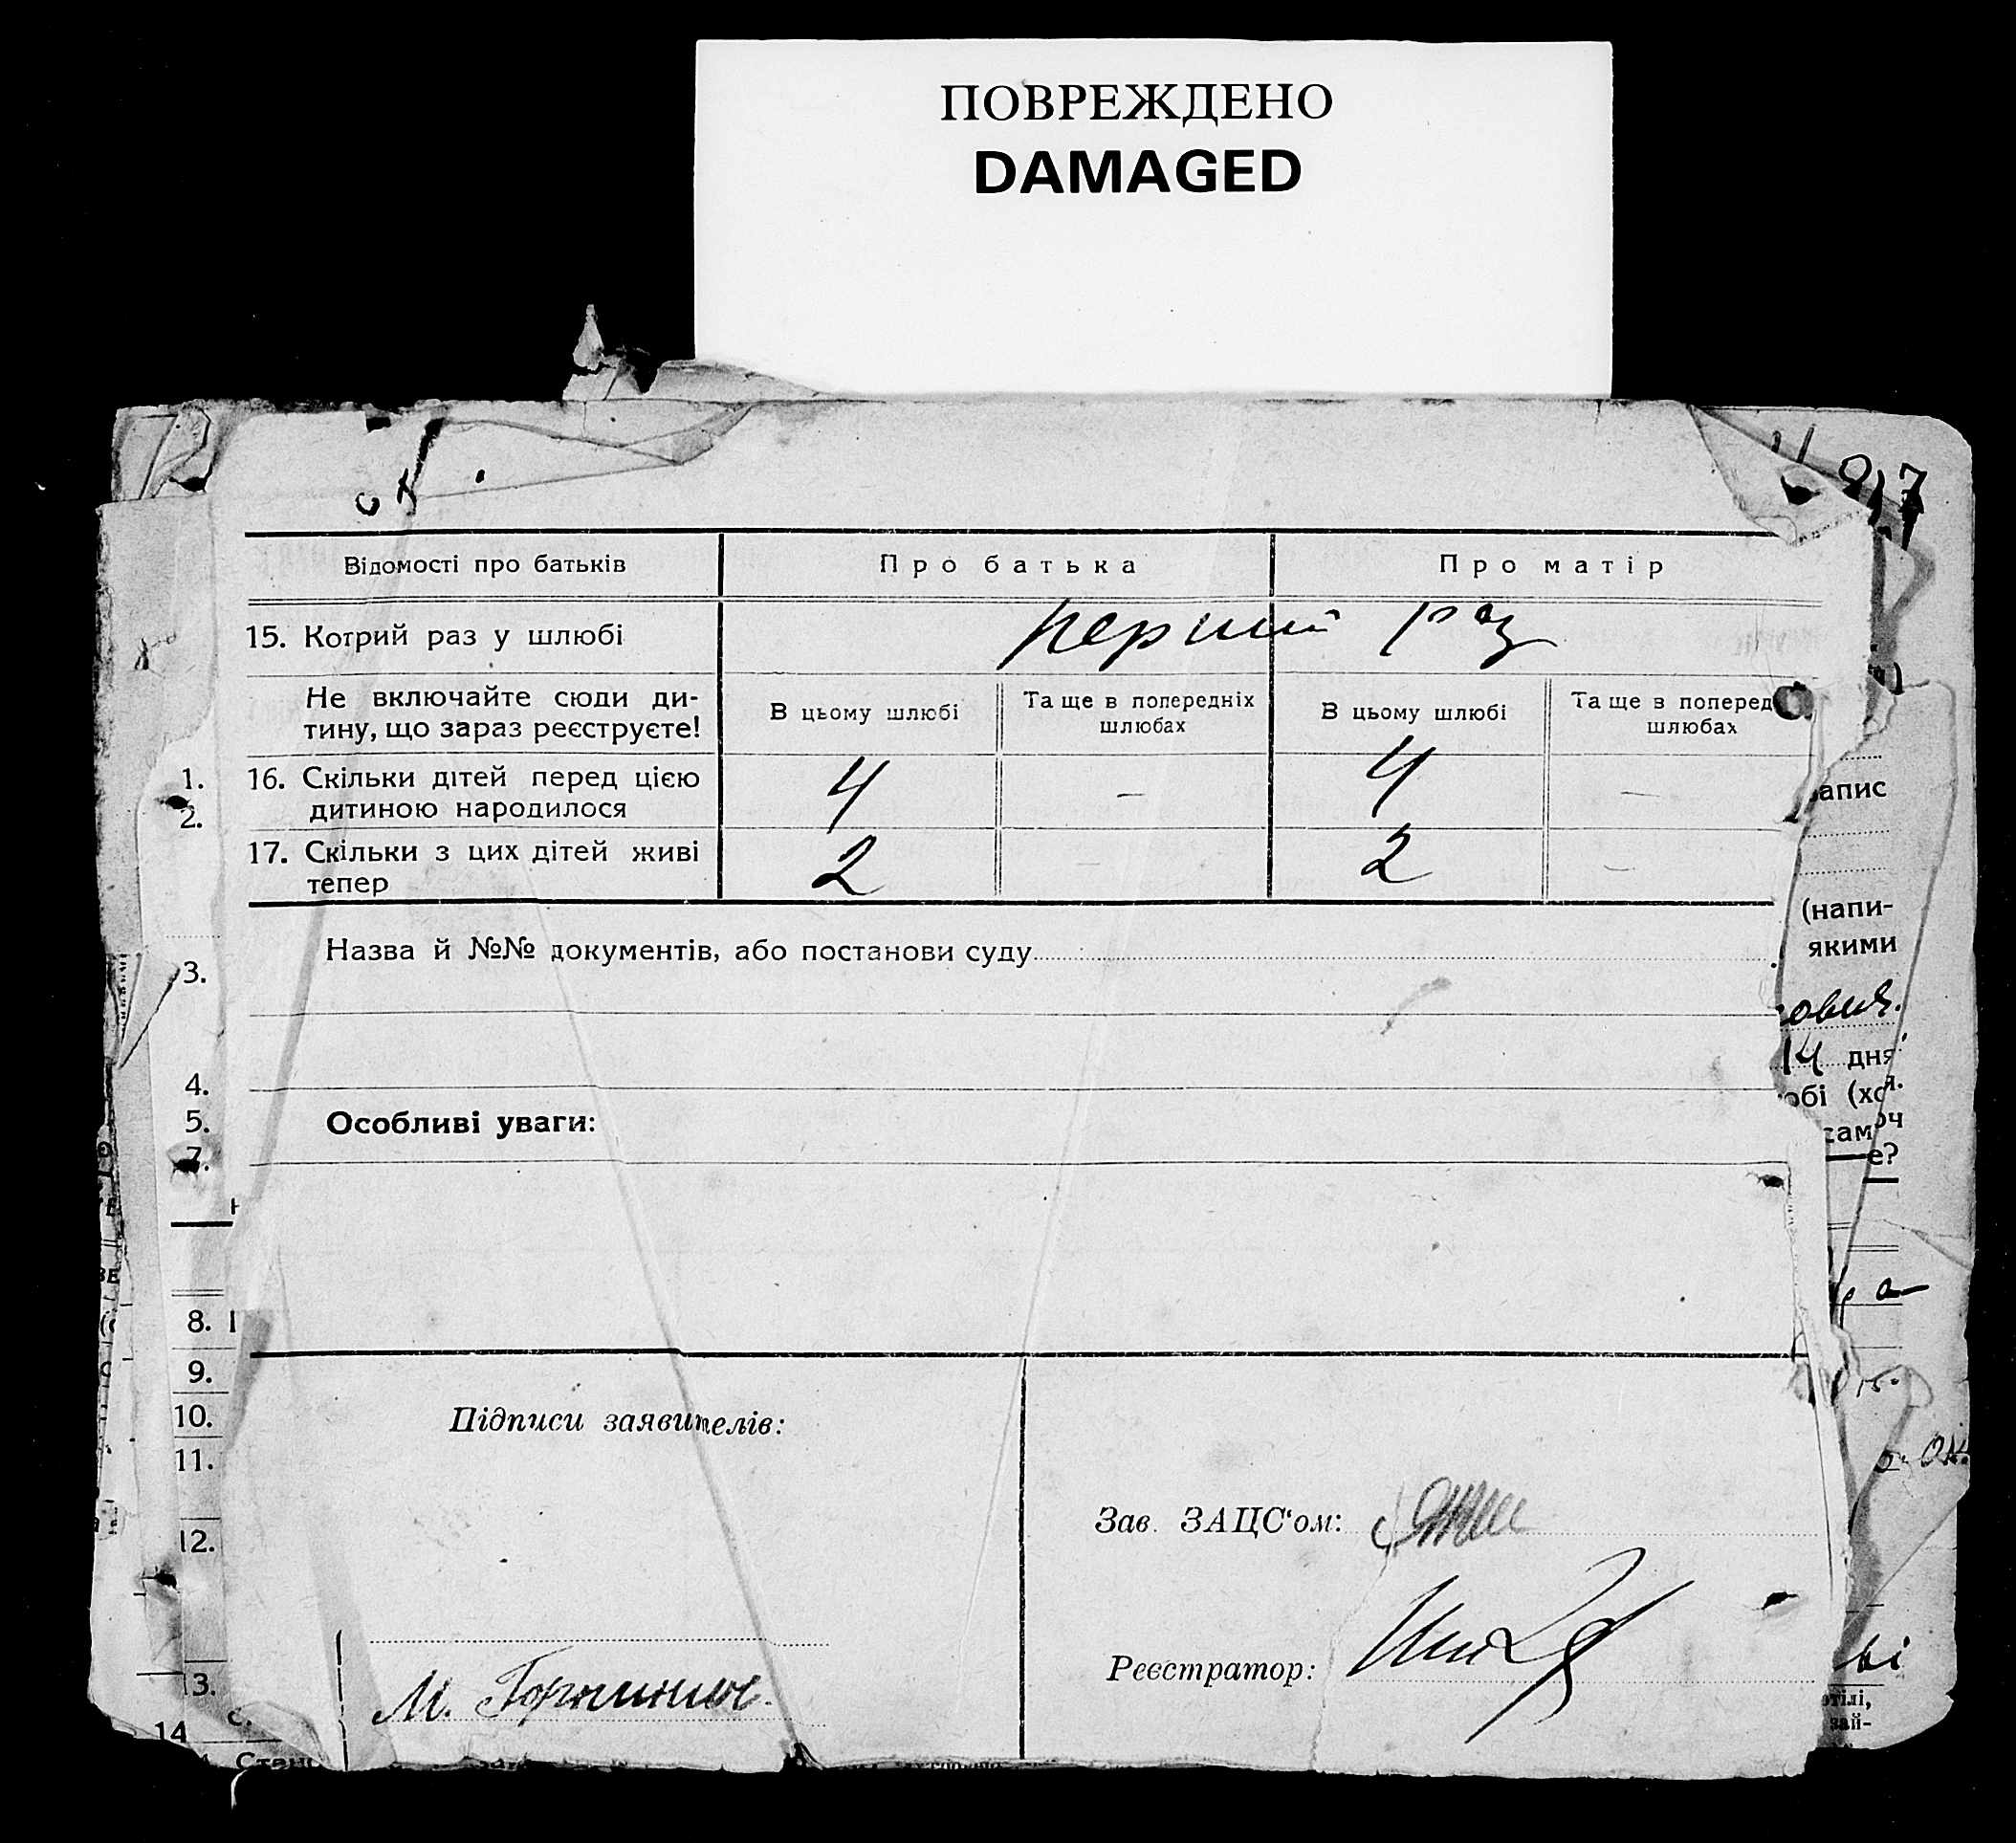 ПОВРЕЖДЕНО
DAMAGED
27
Відомості про батьків
Про батька
Про матір
15. Котрий раз у шлюбі
перший раз
Не включайте сюди ди-
тину, що зараз реєструєте!
В цьому шлюбі
Та ще в попередніх
шлюбах
В цьому шлюбі
Та ще в поперед
шлюбах
1.
16. Скільки дітей перед цією
дитиною народилося
4
—
4
—
апис
2.
17. Скільки з цих дітей живі
тепер
2
—
2
—
(напи-
Назва й №№ документів, або постанови суду
якими
3.
ович.
14 дня
4.
обі (хо
5.
Особливі уваги:
сам
оч
7.
е?
8.
9.
10.
Підписи заявителів:
11.
12.
Зав. ЗАЦС'ом:
Реєстратор:
ві
13.
М.
отілі,
зай-
14